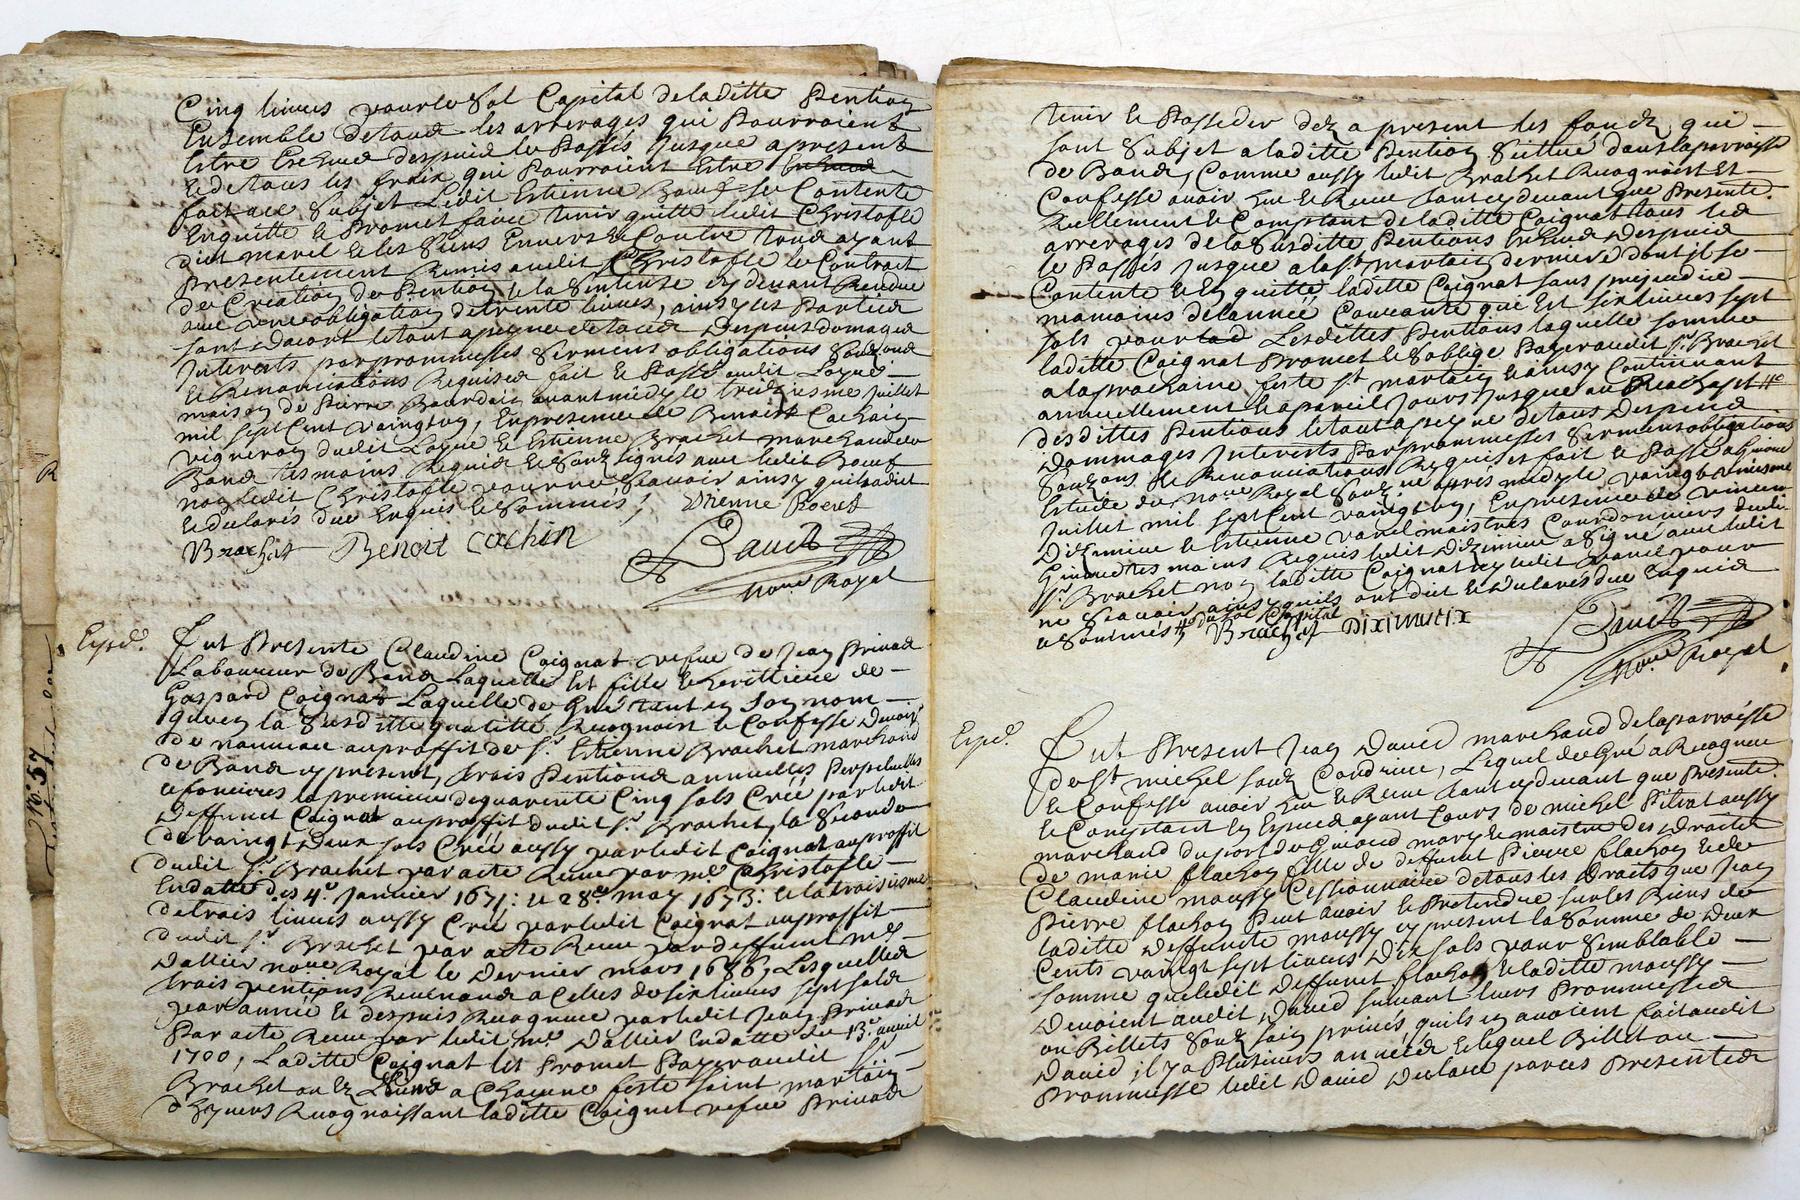 Cinq livres pour le Sol Capital de laditte Pention
Ensemble de tous les arrerages qui Pourroient
Estre Escheus despuis le Passés Jusque apresent
et de tous les fraix qui Pourroient Estre
fait au Subjet Ledit Estienne Boeuf se Contente
Enquitte et Promet faire tenir quitte ledit Christofle
dict marel et les Siens Envers et Contre tous ayant
Presentement Remis audit Christofle le Contract
de Creation de Pention et la Sentense cy devant Rendue
avec une obligation de trente livres, ainsy les Parties
sont dacort le tout a peyne de tous Despens domages
Interests par promesses Sermens obligations
et Renonciations Requises fait et Passé audit Loyre
maison de Pierre Bourdain avant midy le treiziesme Juillet
mil sept Cent vaingt, En presence de Benoist Cochain
vigneron dudit Loyre et Estienne Brachet marchand de
Band tesmoins Requis et Soubsignés avec ledit Boeuf
non ledit Christofle pour ne Scavoir ainsy quil a dit
et declarés due Enquis et Sommés, Etienne Boeuf
Brachet Benoit Cochin
Bauds
nore Royal
Expd. Fut Presente Claudine Coignat vefue de Jean Privad
Laboureur de Band Laquelle Est fille et herittiere de
Gaspard Coignat Laquelle de Gré tant en Son nom
quen la Surditte quallitté Recognoist et Confesse Devoir
de nouveau auproffit de Sr. Etienne Brachet marchand
de Band cy present, trois Pentions annuelles Perpetuelles
et foncieres la premiere de quarente Cinq Sols Créé par ledit
Deffunct Coignat auproffit dudit Sr. Brachet, la Seconde
de vaingt Deux Sols Créé aussy par ledit Coignat auproffit
dudit Sr. Brachet par acte Receu par me. Christofle
En datte des 4e. Janvier 1671: et 28e. may 1673: et la troisiesme
de trois livres aussy Créé par ledit Coignat auproffit
dudit Sr. Brachet par acte Receu par deffunct me.
Dallier nore Royal le Dernier mars 1686, Lesquelles
trois pentions Revenans a Celles de Six livres Sept Sols
par année et despuis Recognue par ledit Jean Privad
Par acte Receu par ledit me. Dallier En datte du 13e. avril
1700, Laditte Coignat Est Promet Payer audit Sr.
Brachet ou Es Siens a Chacune feste Saint martain
dhyvers Recognoissant laditte Coignat vefue Privad
tenir et Posseder dez a present les fonds qui
Sont Subjet a laditte Pention Scittue dans la parroisse
de Band, Comme aussy ledit Brachet Recognoist Et
Confesse avoir Heu et Receu tant cy devant que Presente.
Reellement et Comptant de laditte Coignat tous les
arrerages de la Surditte Pentions Escheus Despuis
le Passés Jusque a la St. martain derniere dont il se
Contente et En quitte laditte Coignat Sans prejudice
de lannée Courante qui Est Six livres Sept
Sols pour Lesdittes Pentions laquelle Somme
laditte Coignat Promet et Soblige Payer audit Sr. Brachet
a la prochaine feste St. martain et ainsy Continuant
annuellement et a pareil Jours Jusque au Rachapt
desdittes Pentions le tout a peyne de tous Despens
Dommages Interests Par promesses Sermens obligations
et Renonciations Requises fait et Passé a Givors
Estude du nore Royal Soubsné apres midy le
Juillet mil Sept Cent vaingt, En presence de
Diximiux et Estienne maistres Cordonniers dudit
Givors tesmoins Requis ledit Diximiux a Signé avec ledit
Sr. Brachet non laditte Coignat ny ledit pour
ne Scavoir ainsy quils ont dict et declarés due Enquis
et Sommés du Sol Capital
Brachet Diximieux
Bauds
nore Royal
Expd. Fut Present Jean David marchand de la parroisse
de St. michel Soubs Condrieu, Lequel de Gré a Recogneu
et Confessé avoir Heu et Receu tant cy devant que Presente.
et Comptant En Especes ayant Cours de michel aussy
marchand du port de Givord mary et maistre des Droits
de marie flachon fille de deffunct Pierre flachon et de
Claudine moussy Cessionnaire de tous les Droits que Jean
Pierre flachon Peut avoir et Pretendre sur les Biens de
laditte Deffuncte moussy cy present la Somme de Deux
Cents vaingt Sept livres Dix Sols pour Semblable
Somme que ledit Deffunct flachon et laditte moussy
Devoient audit David Suivant leurs Prommesses
ou Billets Soubs Sein privés quils en avoient fait audit
David, il y a Plusieurs années Et lequel Billet ou
Prommesse ledit David Declare par ces Presentes
no. 57